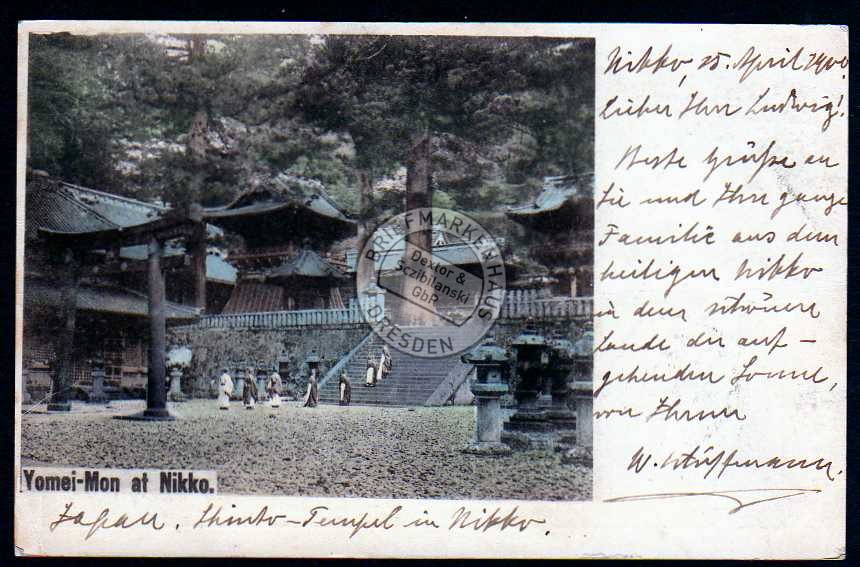 Nikko, 25. April 1900.
Lieber Herr Ludwig!
Beste Grüße an
Sie und Ihre ganze
Familie aus dem
heiligen Nikko
in dem schönen
Lande der auf-
gehenden Sonne,
von Ihrem
W.
Yomei-Mon at Nikko.
Japan. Shinto-Tempel in Nikko.
BRIEFMARKENHAUS
Dextor &
Sczibilanski
GbR
DRESDEN